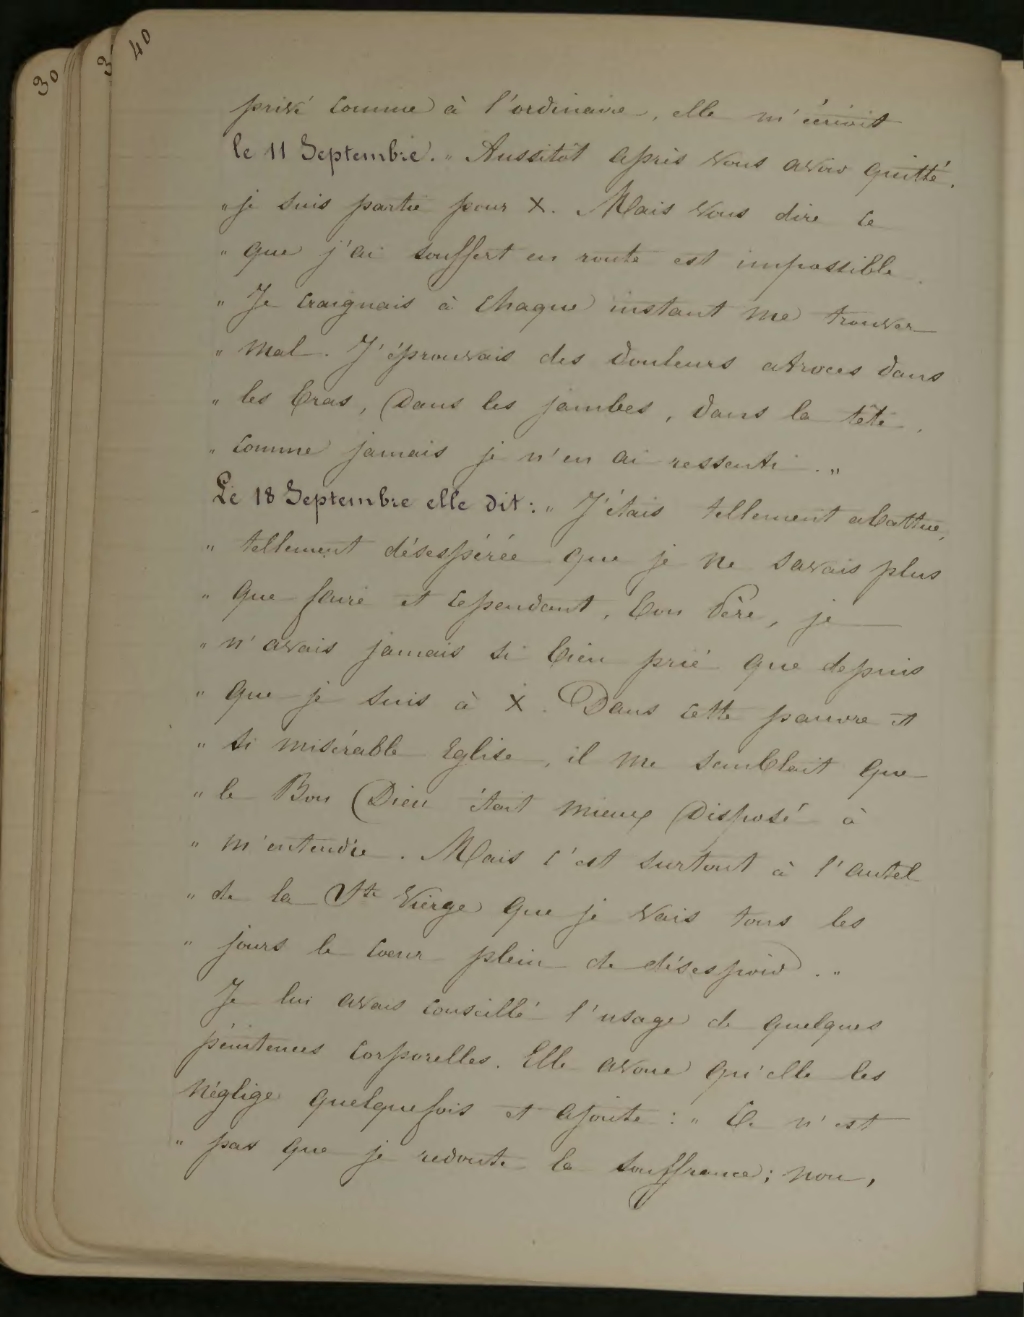 30
3
40
privé comme à l'ordinaire, elle m'écrivit
le 11 Septembre. „ Aussitôt après vous avoir quitté,
„ je suis partie pour X. Mais vous dire ce
„ que j'ai souffert en route est impossible.
„ Je craignais à chaque instant me trouver
„ mal. J'éprouvais des douleurs atroces dans
„ les bras, dans les jambes, dans la tête,
„ comme jamais je n'en ai ressenti. „
Le 18 Septembre elle dit: „ J'étais tellement abattue,
„ tellement désespérée que je ne savais plus
„ que faire et cependant, bon Père, je
„ n'avais jamais si bien prié que depuis
„ que je suis à X. Dans cette pauvre et
„ si misérable Eglise, il me semblait que
„ le Bon Dieu était mieux disposé à
„ m'entendre. Mais c'est surtout à l'autel
„ de la Ste Vierge que je vais tous les
„ jours le coeur plein de désespoir. „
Je lui avais conseillé l'usage de quelques
pénitences corporelles. Elle avoue qu'elle les
néglige quelquefois et ajoute: „ Ce n'est
„ pas que je redoute la souffrance; non,